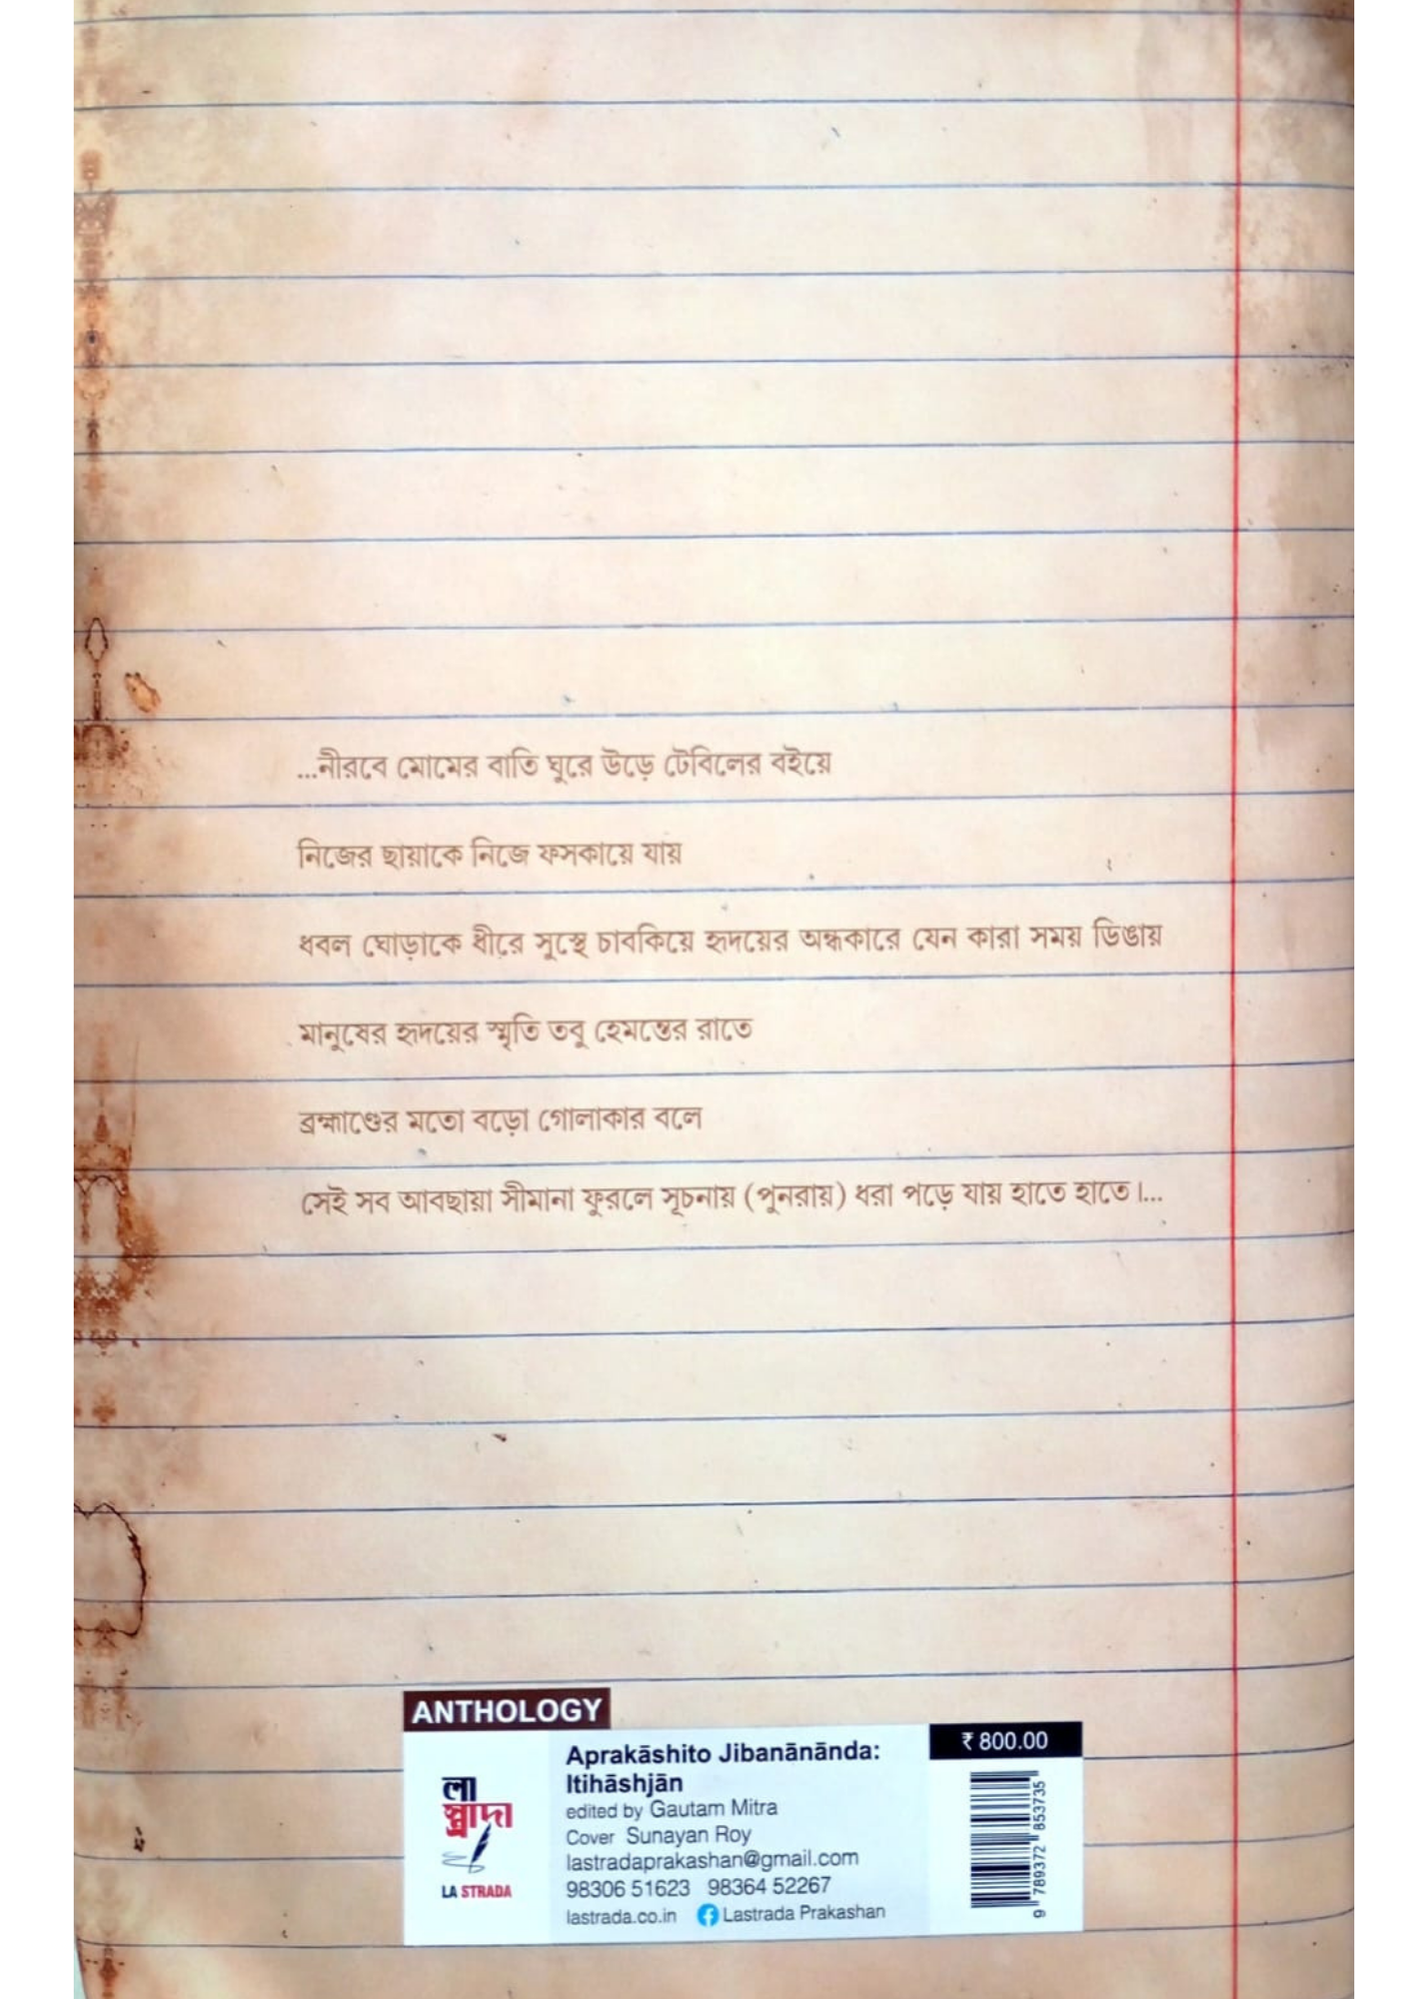 ...নীরবে মোমের বাতি ঘুরে উড়ে টেবিলের বইয়ে
নিজের ছায়াকে নিজে ফসকায়ে যায়
ধবল ঘোড়াকে ধীরে সুস্থে চাবকিয়ে হৃদয়ের অন্ধকারে যেন কারা সময় ডিঙায়
মানুষের হৃদয়ের স্মৃতি তবু হেমন্তের রাতে
ব্রহ্মাণ্ডের মতো বড়ো গোলাকার বলে
সেই সব আবছায়া সীমানা ফুরলে সূচনায় (পুনরায়) ধরা পড়ে যায় হাতে হাতে।...
ANTHOLOGY
লা
স্ত্রাদা
LA STRADA
Aprakāshito Jibanānānda:
Itihāshjān
edited by Gautam Mitra
Cover Sunayan Roy
lastradaprakashan@gmail.com
98306 51623 98364 52267
lastrada.co.in Lastrada Prakashan
₹ 800.00
9 789372 853735